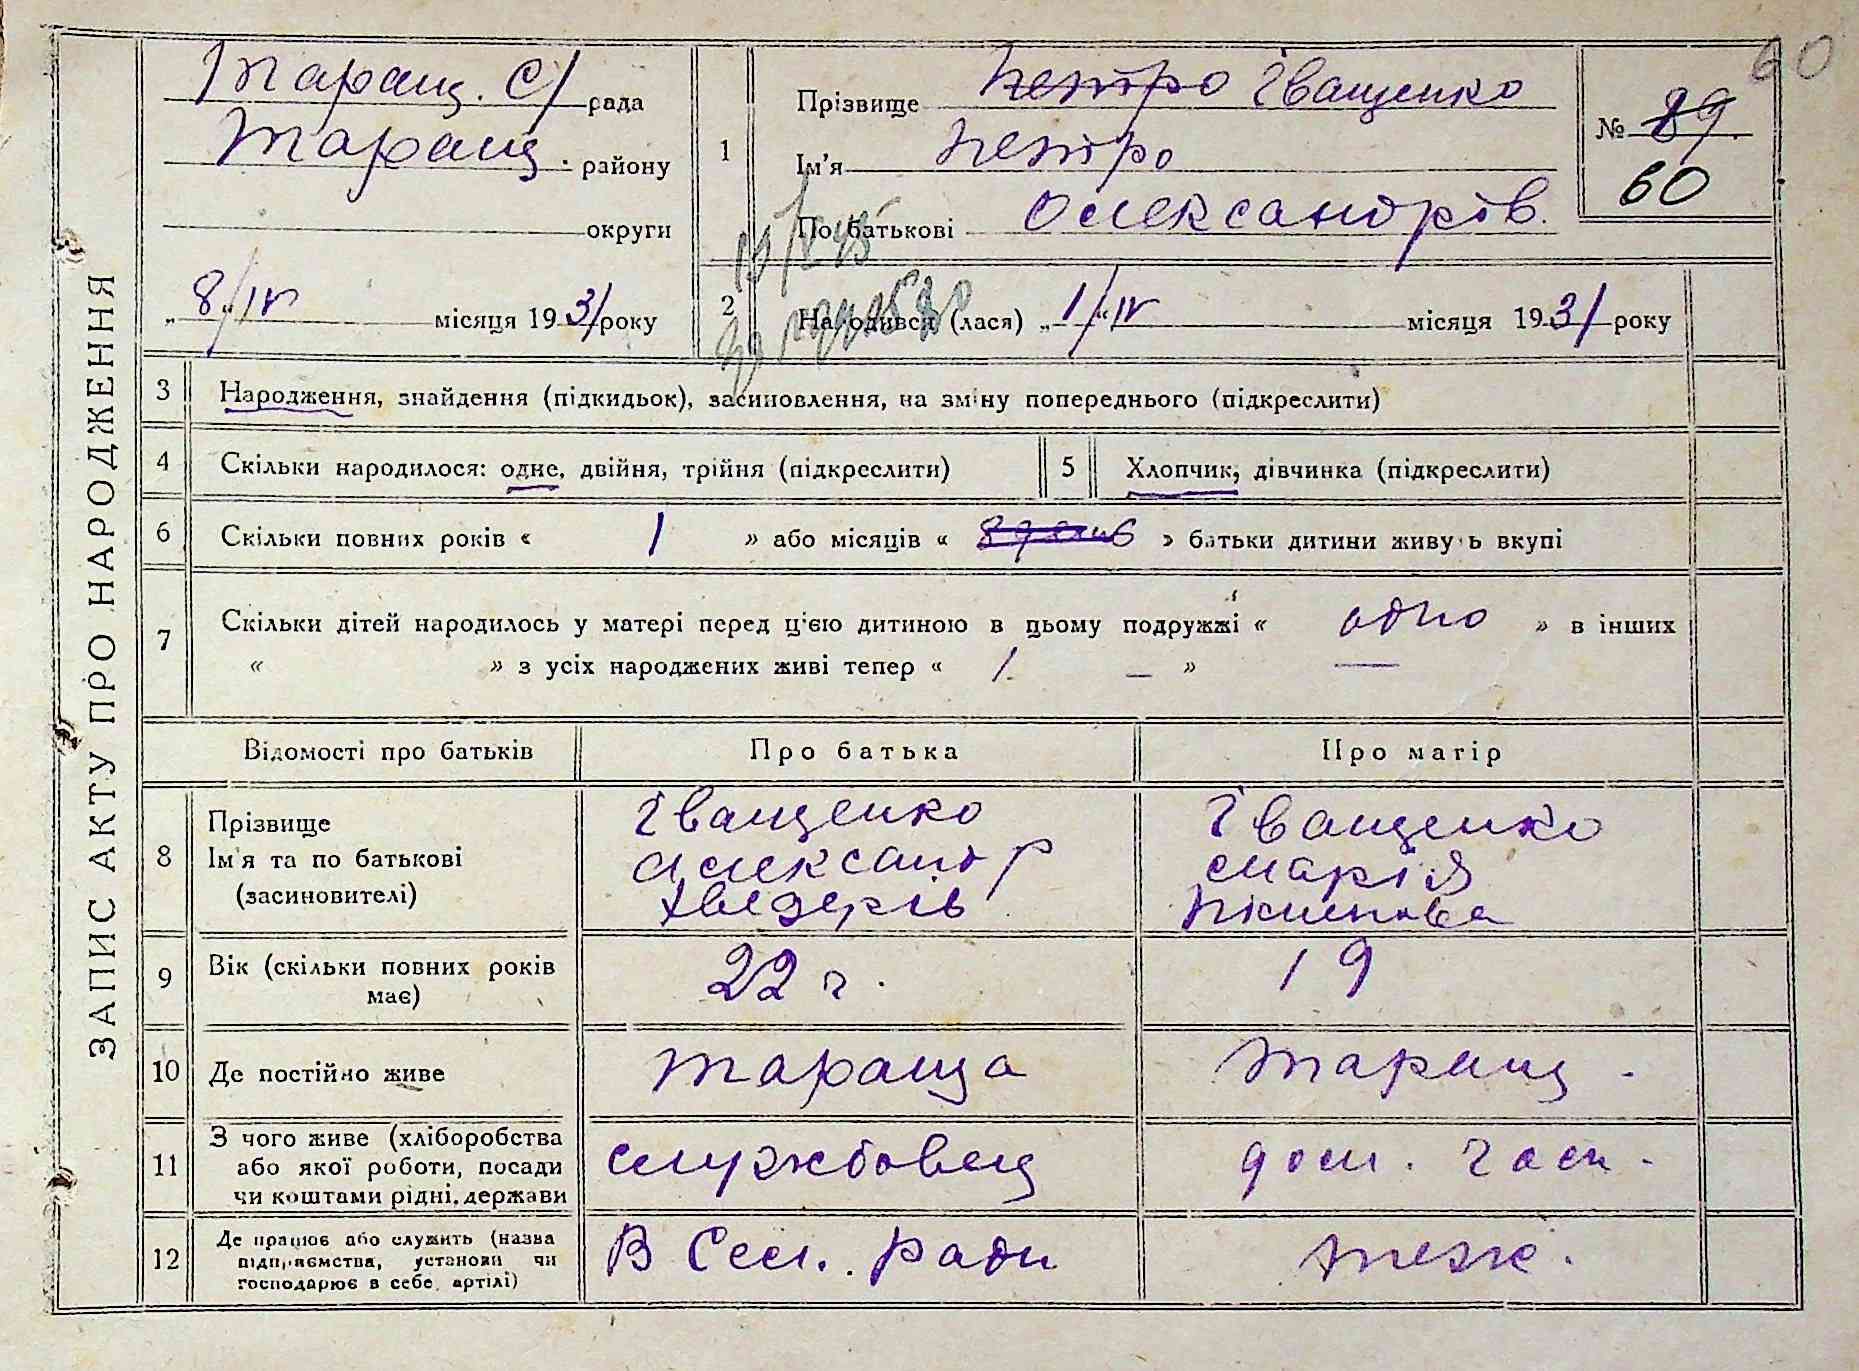 60
Таращ. С/ рада
Таращ. району
округи
„ 8/IV місяця 1931 року
1
Прізвище Петро Іващенко
Ім'я Петро
По батькові Олександрів.
№ 89
60
2
Народився (лася) „ 1/"IV місяця 1931 року
ЗАПИС АКТУ ПРО НАРОДЖЕННЯ
3 Народження, знайдення (підкидьок), засиновлення, на зміну попереднього (підкреслити)
4 Скільки народилося: одне, двійня, трійня (підкреслити) 5 Хлопчик, дівчинка (підкреслити)
6 Скільки повних років « 1 » або місяців « » батьки дитини живуть вкупі
7 Скільки дітей народилось у матері перед ц'єю дитиною в цьому подружжі « одно » в інших
« » з усіх народжених живі тепер « 1. — » —
Відомості про батьків Про батька Про матір
8 Прізвище
Ім'я та по батькові
(засиновителі)
Іващенко
Александр
Іващенко
Марія
9 Вік (скільки повних років
має)
22 г.
19
10 Де постійно живе Тараща Таращ -
11 З чого живе (хліборобства
або якої роботи, посади
чи коштами рідні, держави
службовец
дом. госп.
12 Де працює або служить (назва
підприємства, установи чи
господарює в себе, артілі)
В Сел. ради
теж.